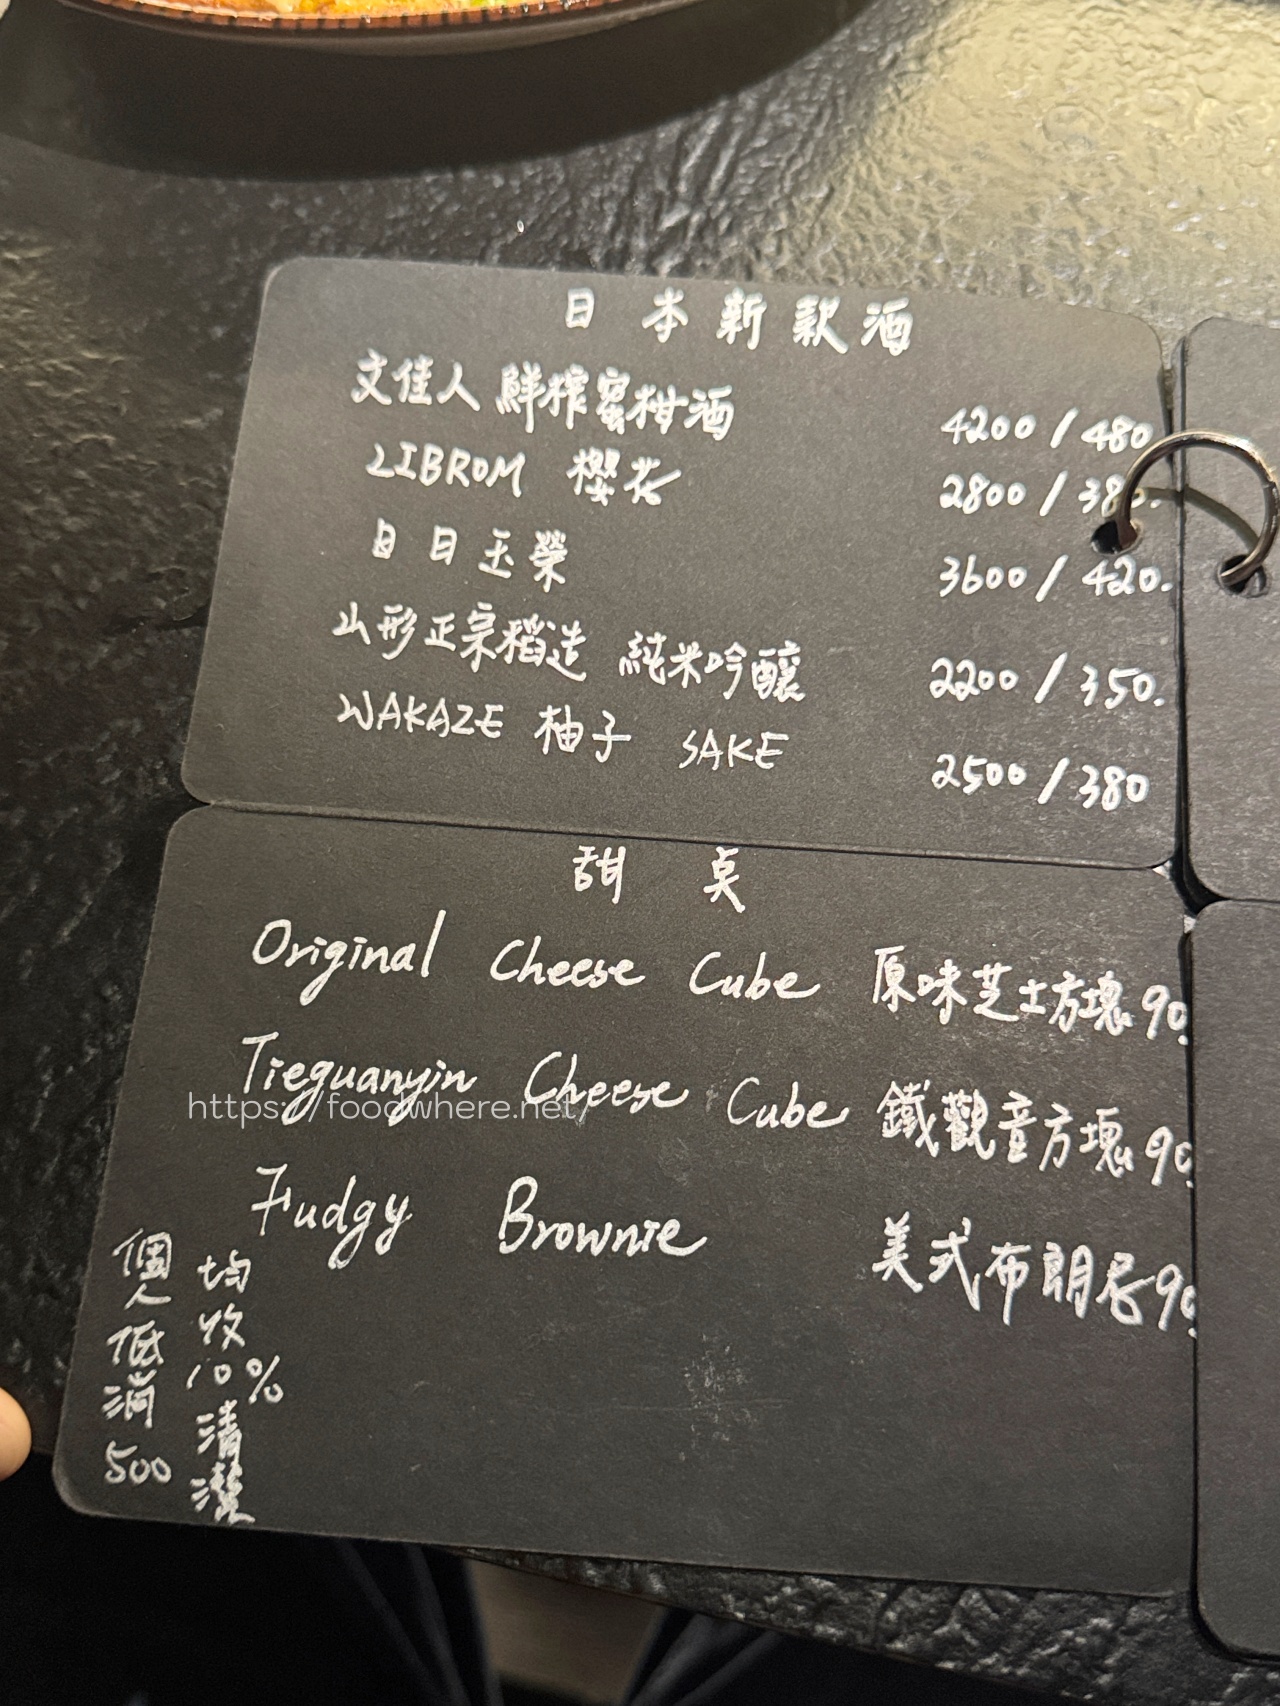 日本新款酒
文佳人 鮮榨蜜柑酒 4200 / 480
LIBROM 櫻花 2800 / 380.
日日玉榮 3600 / 420.
山形正宗稻造 純米吟釀 2200 / 350.
WAKAZE 柚子 SAKE 2500 / 380
甜 点
Original Cheese Cube 原味芝士方塊 90.
Tieguanyin Cheese Cube 鐵觀音方塊 90
Fudgy Brownie 美式布朗尼 90.
均收10%清潔
個人低消500
https://foodwhere.net/